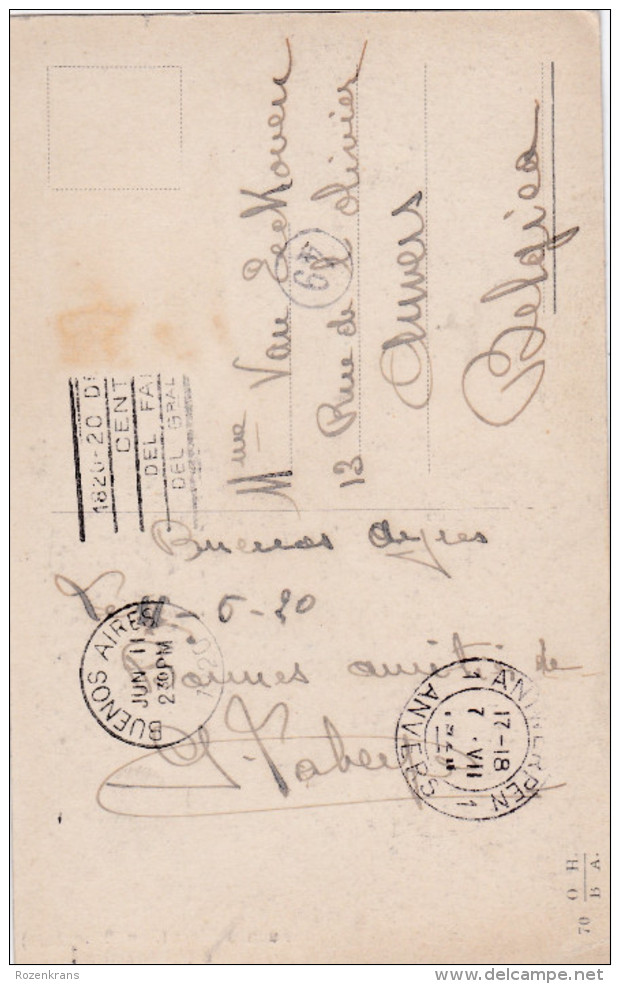 Buenos Ayres
Le 11-6-20
Bonnes amitiés de
Mme Van Eeckhoven
13 Rue de l'olivier
Anvers
Belgica
49
1820-20 DE
CENT
DEL FAL
DEL GRAL
BUENOS AIRES
JUN 11
2 30 PM
1920
1 ANTWERPEN 1
17-18
7 · VII
ANVERS
70 O H.
B A.
Rozenkrans
www.delcampe.net